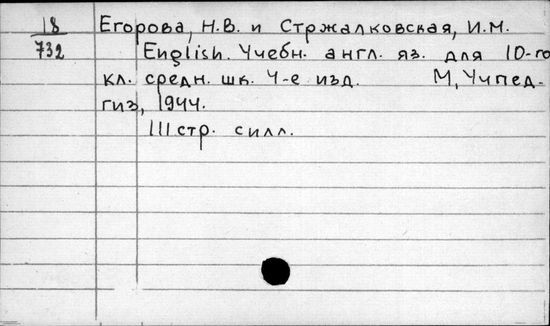 18 Егорова, Н.В. и Стржалковская, И.М.
732 English. Учебн. англ. яз. для 10-го
кл. средн. шк. 4-е изд. М, Учпед-
гиз, 1944.
111 стр. с илл.